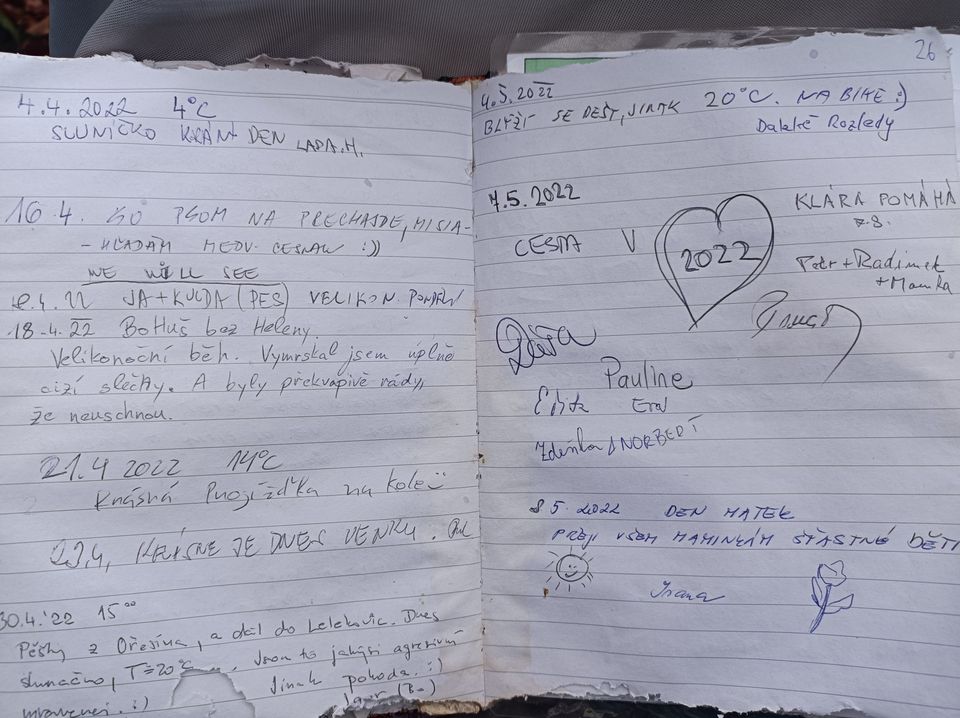 4.4.2022 4°C
SLUNÍČKO KRÁNÝ DEN LADA.H.
16.4. SO PSOM NA PRECHAJDE, MISIA-
- HĽADÁM MEDV. CESNAK :))
WE WILL SEE
.4.22 JA + KULDA (PES) VELIKON. PONDĚLÍ
18.4.22 Bohuš bez Heleny.
Velikonoční běh. Vymrskal jsem úplně
cizí slečny. A byly překvapivě rády,
že neuschnou.
21.4 2022 14°C
Krásná Projížďka na kole
29.4, KRÁSNE JE DNES VENKU.
30.4.'22 15⁰⁰
Pěšky z Ořešína, a dál do Lelekovic. Dnes
slunačno, T=20°C Jsou tu jakýsi agresivní
mravenci. :) Jinak pohoda. :)
26
4.5.2022
BLÍŽÍ SE DEŠŤ, JINAK 20°C. NA BIKE :)
Daleké Rozledy
7.5.2022
CESTA V 2022
KLÁRA POMÁHÁ
z.s.
Petr + Radimek
+ Mamka
Pauline
Edita
Zdeňka NORBERT
8 5. 2022 DEN MATEK
PŘEJI VŠEM MAMINKÁM ŠŤASTNÉ DĚTI
Ivana